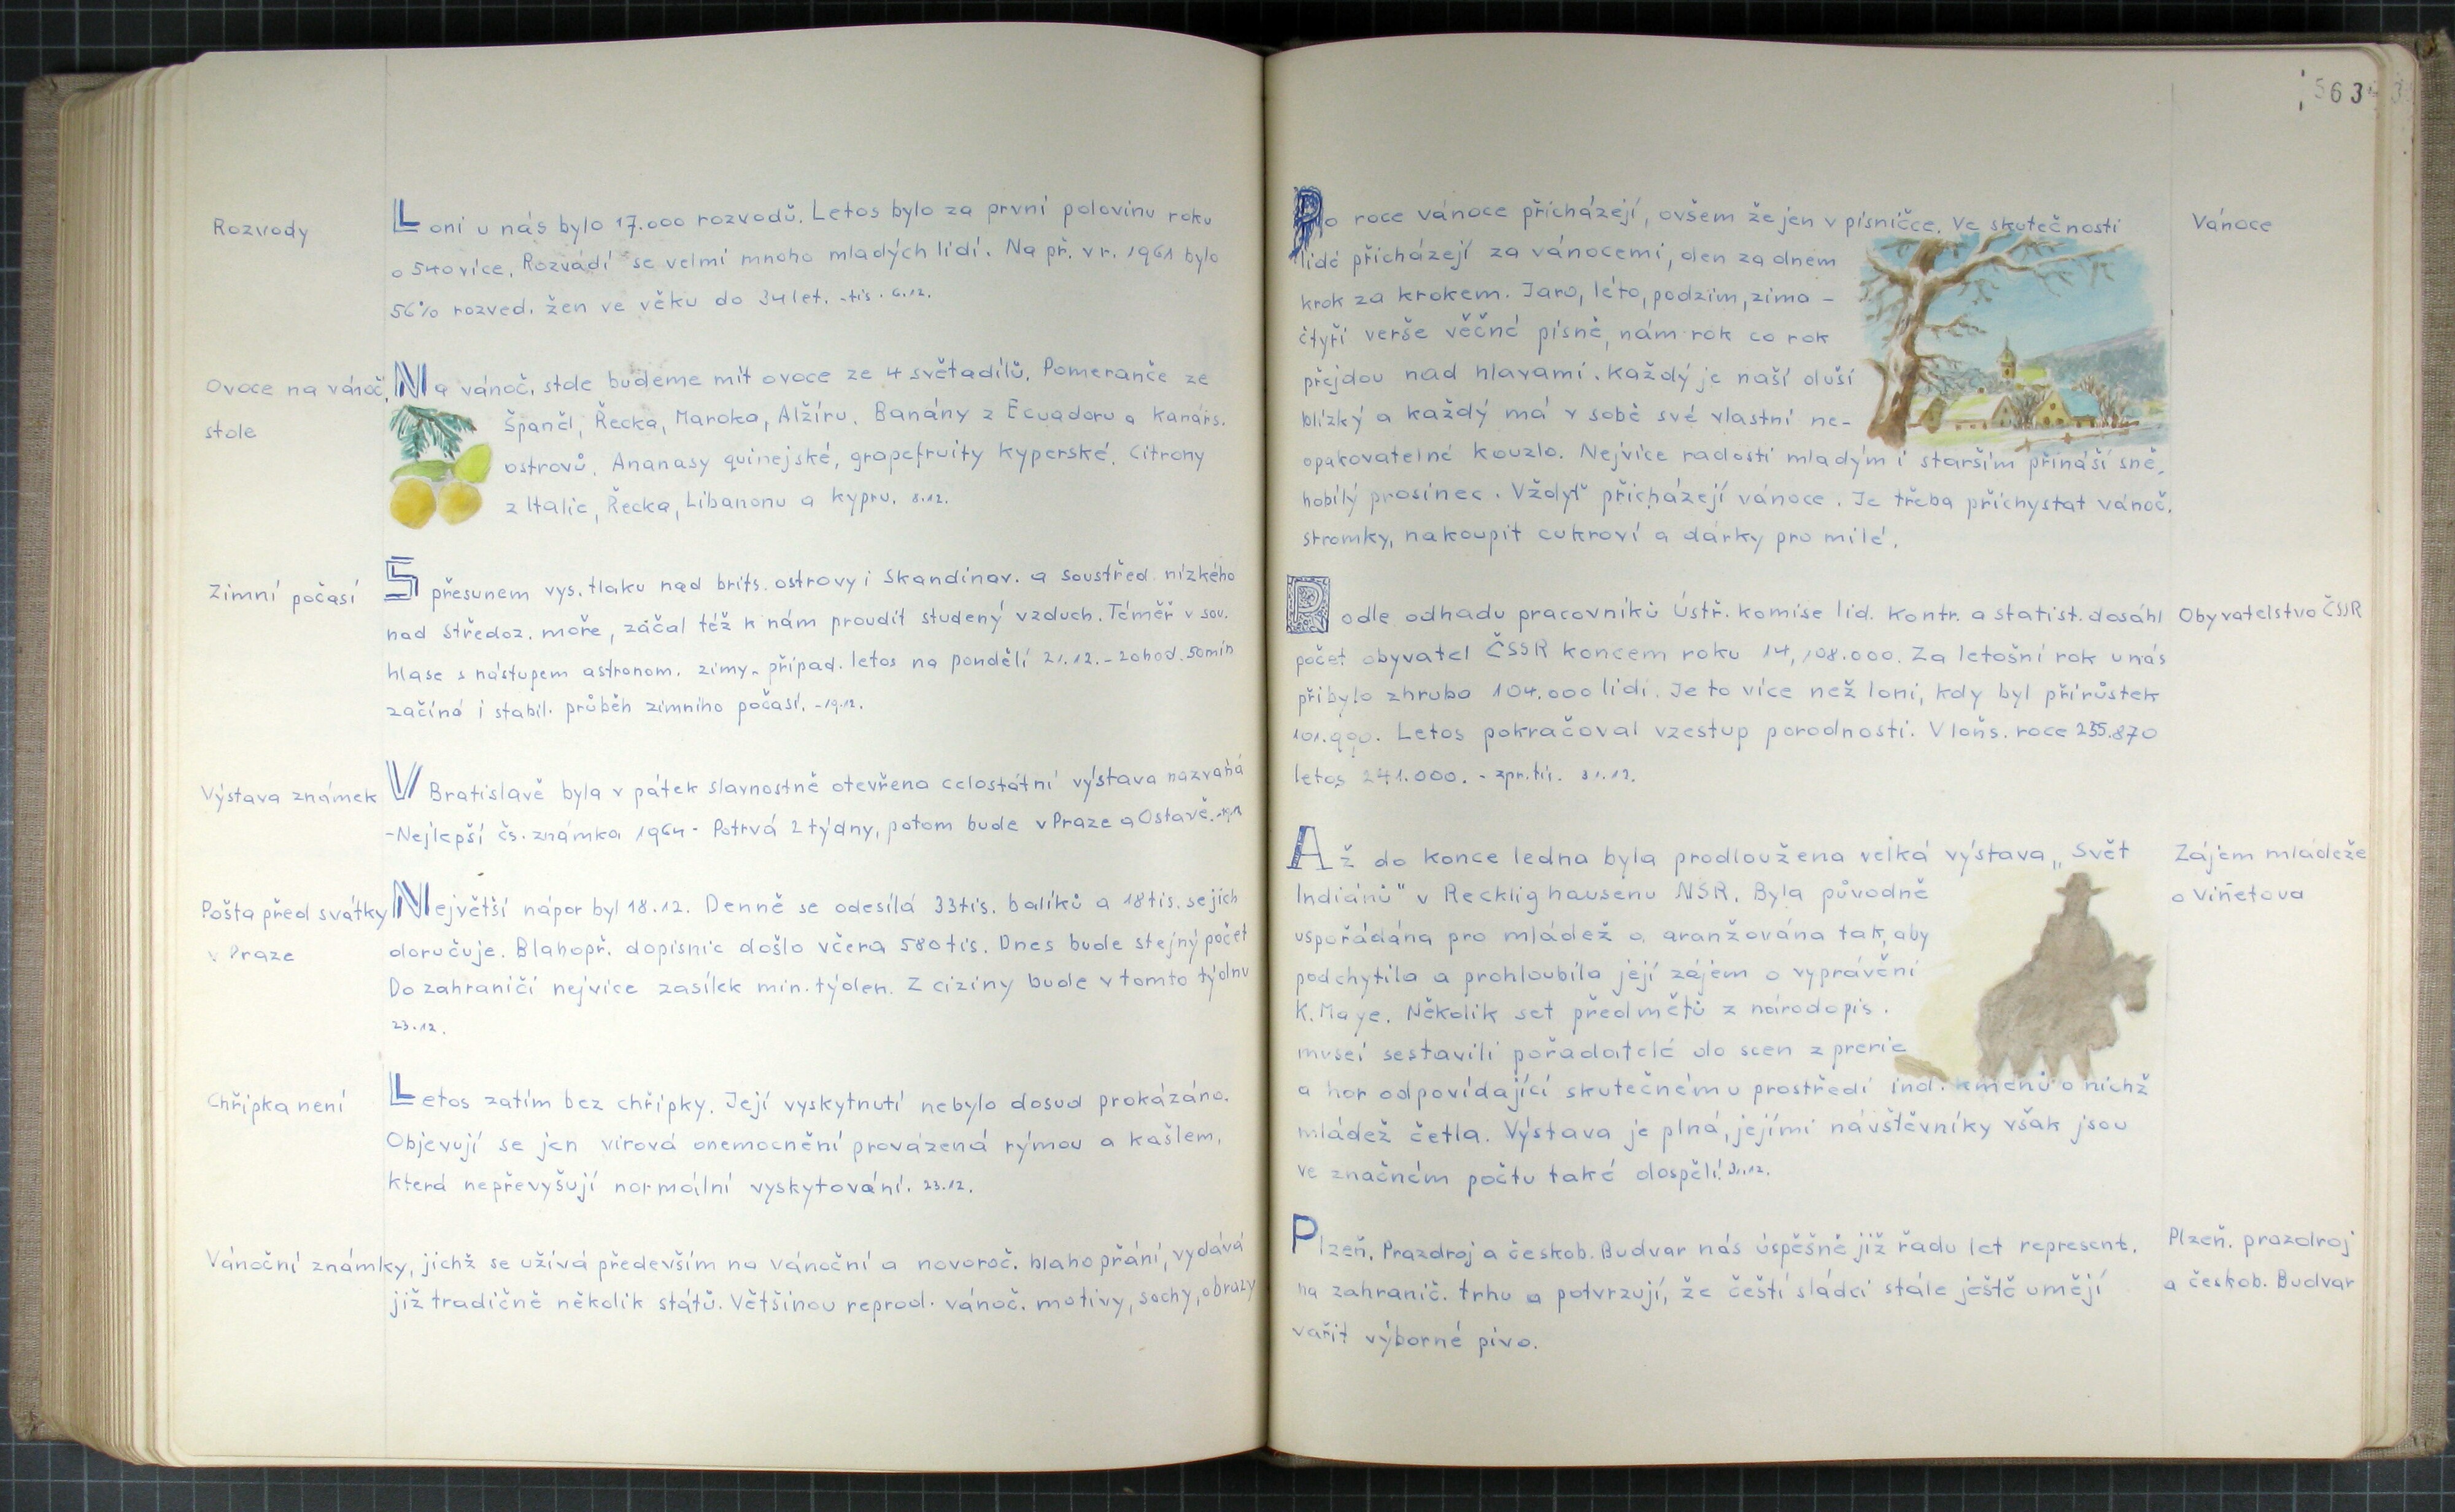 Rozvody
Loni u nás bylo 17.000 rozvodů. Letos bylo za první polovinu roku
o 540 více. Rozvádí se velmi mnoho mladých lidí. Na př. v r. 1961 bylo
56% rozved. žen ve věku do 34 let. -tis. 6.12.
Ovoce na vánoč.
stole
Na vánoč. stole budeme mít ovoce ze 4 světadílů. Pomeranče ze
Španěl, Řecka, Maroka, Alžíru. Banány z Ecuadoru a Kanárs.
ostrovů. Ananasy quinejské, grapefruity kyperské. Citrony
z Italie, Řecka, Libanonu a Kypru. 8.12.
Zimní počasí
S přesunem vys. tlaku nad brits. ostrovy i Skandinav. a soustřed. nízkého
nad Středoz. moře, začal též k nám proudit studený vzduch. Téměř v sou.
hlase s nástupem astronom. zimy - připad. letos na pondělí 21.12. - 20 hod. 50 min
začíná i stabil. průběh zimního počasí. - 19.12.
Výstava známek
V Bratislavě byla v pátek slavnostně otevřena celostátní výstava nazvaná
-Nejlepší čs. známka 1964 - Potrvá 2 týdny, potom bude v Praze a Ostavě.
Pošta před svátky
v Praze
Největší nápor byl 18.12. Denně se odesílá 33 tis. balíků a 18 tis. se jich
doručuje. Blahopř. dopisnic došlo včera 580 tis. Dnes bude stejný počet
Do zahraničí nejvíce zasílek min. týden. Z ciziny bude v tomto týdnu
23.12.
Chřipka není
Letos zatím bez chřipky. Její vyskytnutí nebylo dosud prokázáno.
Objevují se jen virová onemocnění provázená rýmou a kašlem,
která nepřevyšují normální vyskytování. 23.12.
Vánoční známky, jichž se užívá především na vánoční a novoroč. blahopřání, vydává
již tradičně několik států. Většinou reprod. vánoč. motivy, sochy, obrazy
563
Vánoce
Po roce vánoce přicházejí, ovšem že jen v písničce. Ve skutečnosti
lidé přicházejí za vánocemi, den za dnem
krok za krokem. Jaro, léto, podzim, zima -
čtyři verše věčné písně, nám rok co rok
přejdou nad hlavami. Každý je naší duši
blízký a každý má v sobě své vlastní ne-
opakovatelné kouzlo. Nejvíce radosti mladým i starším přináší sně.
hobílý prosinec. Vždyť přicházejí vánoce. Je třeba přichystat vánoč.
stromky, nakoupit cukroví a dárky pro milé.
Obyvatelstvo ČSSR
Podle odhadu pracovníků Ústř. komise lid. kontr. a statist. dosáhl
počet obyvatel ČSSR koncem roku 14,108.000. Za letošní rok u nás
přibylo zhruba 104.000 lidí. Je to více než loni, kdy byl přírůstek
101.900. Letos pokračoval vzestup porodnosti. V loňs. roce 235.870
letos 241.000. - zpr. tis. 31.12.
Zájem mládeže
o Viňetoua
Až do konce ledna byla prodloužena velká výstava „Svět
Indiánů" v Recklighausenu NSR. Byla původně
uspořádána pro mládež a aranžována tak, aby
podchytila a prohloubila její zájem o vyprávění
K. Maye. Několik set předmětů z národopis.
museí sestavili pořadatelé do scen z prerie
a hor odpovídající skutečnému prostředí ind. kmenů o nichž
mládež četla. Výstava je plná, jejími návštěvníky však jsou
ve značném počtu také dospělí. 31.12.
Plzeň. prazdroj
a českob. Budvar
Plzeň. Prazdroj a českob. Budvar nás úspěšně již řadu let represent.
na zahranič. trhu a potvrzují, že čeští sládci stále ještě umějí
vařit výborné pivo.